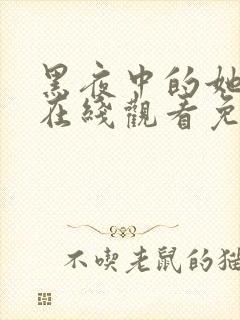 黑夜中的她
在綫觀看免
不喫老鼠的猫